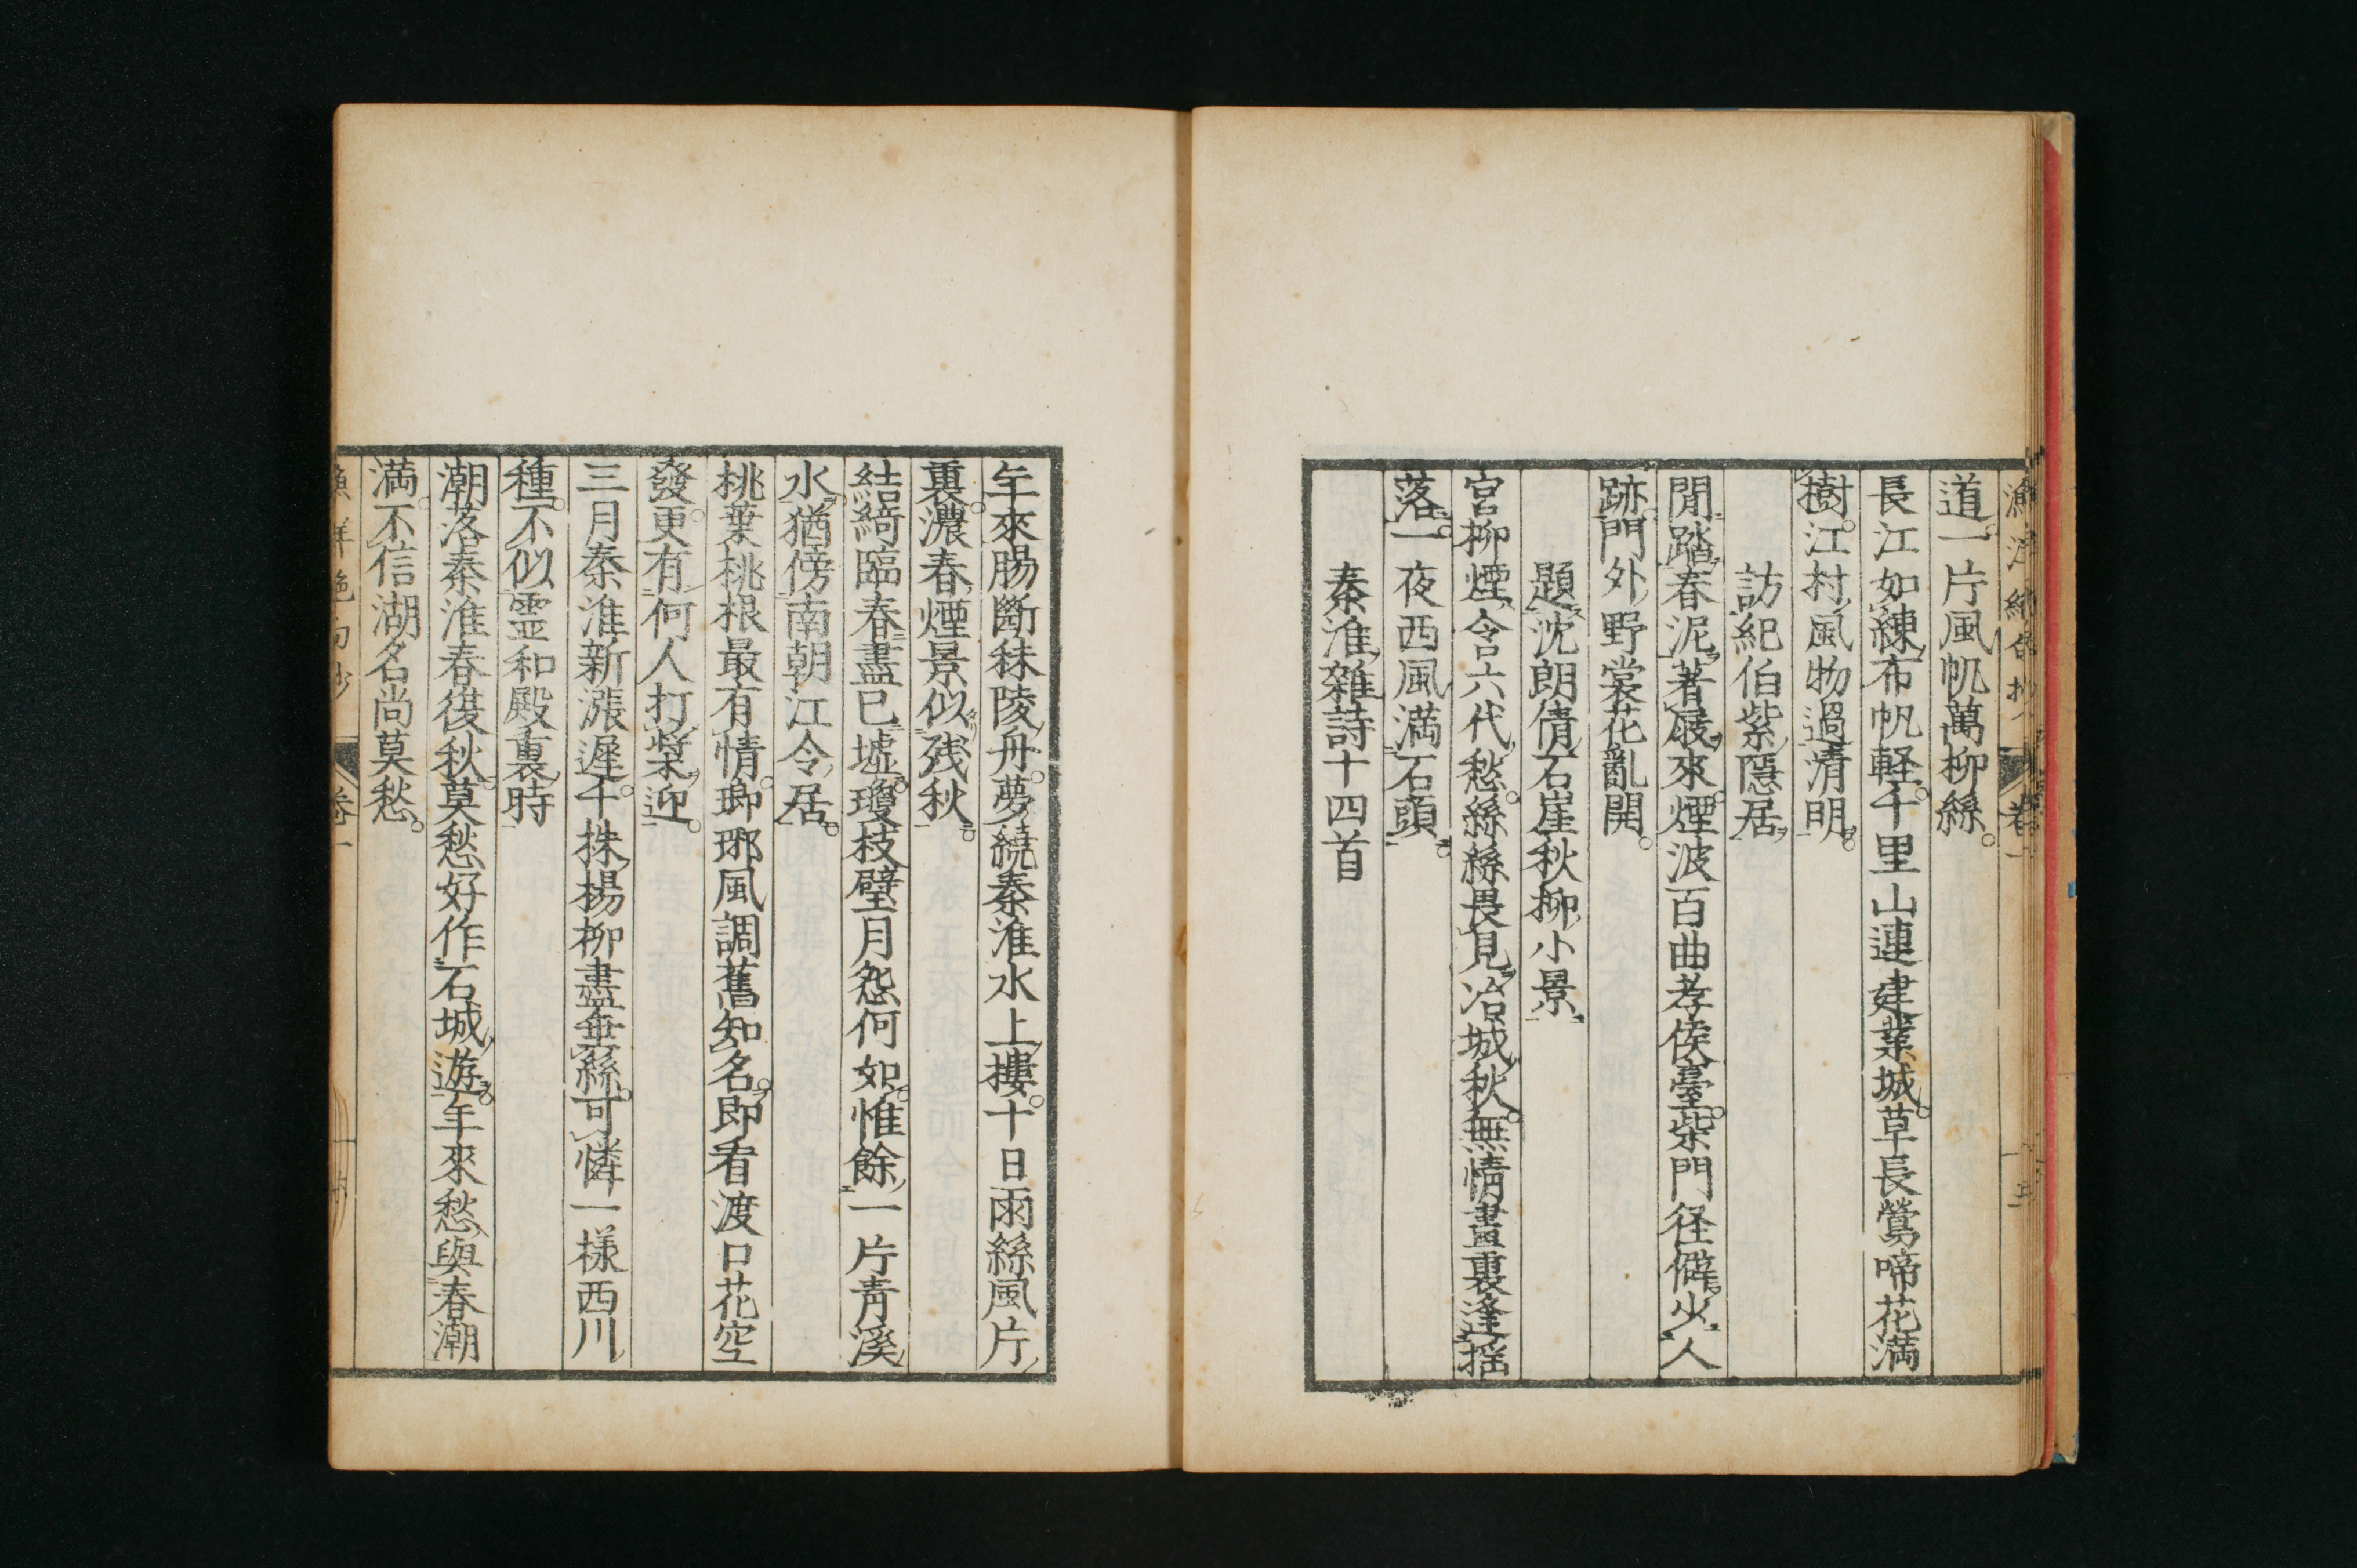 漁洋絶句抄 巻一
道。一片風帆萬柳絲。
長江如練布帆軽。千里山連建業城。草長鶯啼花満
樹。江村風物過清明。
訪紀伯紫隠居
閒踏春泥著屐來。煙波百曲孝侯臺。柴門径僻少人
跡。門外野棠花亂開。
題沈朗倩石崖秋柳小景
宮柳煙含六代愁。絲絲畏見冶城秋。無情畫裏逢揺
落。一夜西風満石頭。
秦淮雜詩十四首
年來腸斷秣陵舟。夢繞秦淮水上樓。十日雨絲風片
裏。濃春煙景似残秋。
結綺臨春盡已墟。瓊枝璧月怨何如。惟餘一片青溪
水。猶傍南朝江令居。
桃葉桃根最有情。瑯琊風調舊知名。即看渡口花空
發。更有何人打槳迎。
三月秦淮新漲遲。千株楊柳盡垂絲。可憐一様西川
種。不似霊和殿裏時
潮落秦淮春復秋。莫愁好作石城遊。年來愁與春潮
満。不信湖名尚莫愁。
漁洋絶句抄 巻一